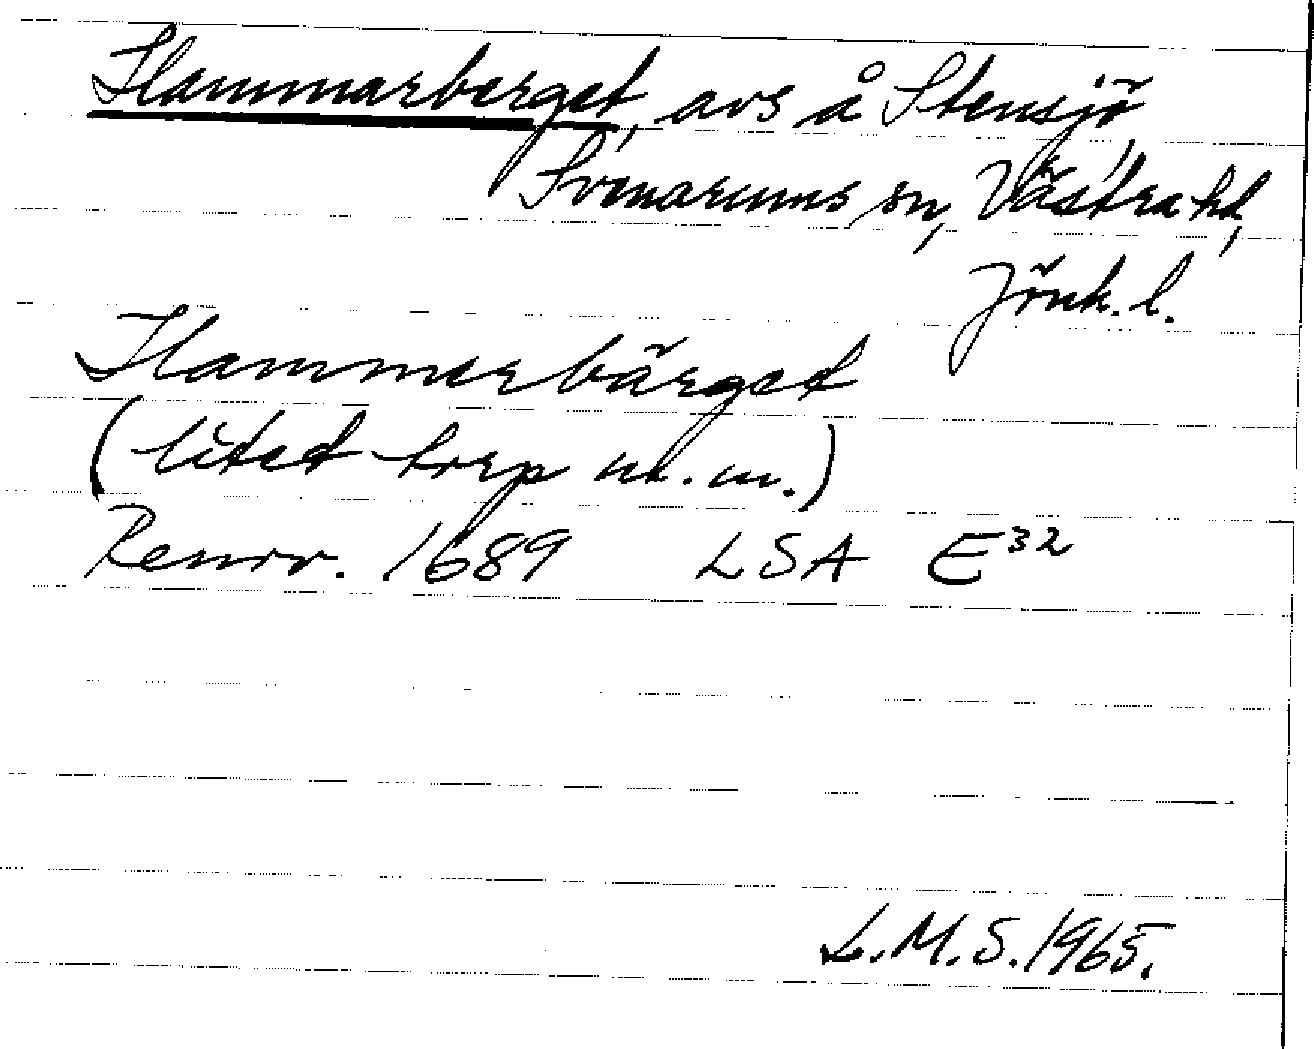 Hammarberget, avs å Stensjö,
Svenarums sn, Västra hd,
Jönk. l.
Hammerbärget
(litet torp nk. m.)
Renov. 1689 LSA E32
L.M.S. 1965.